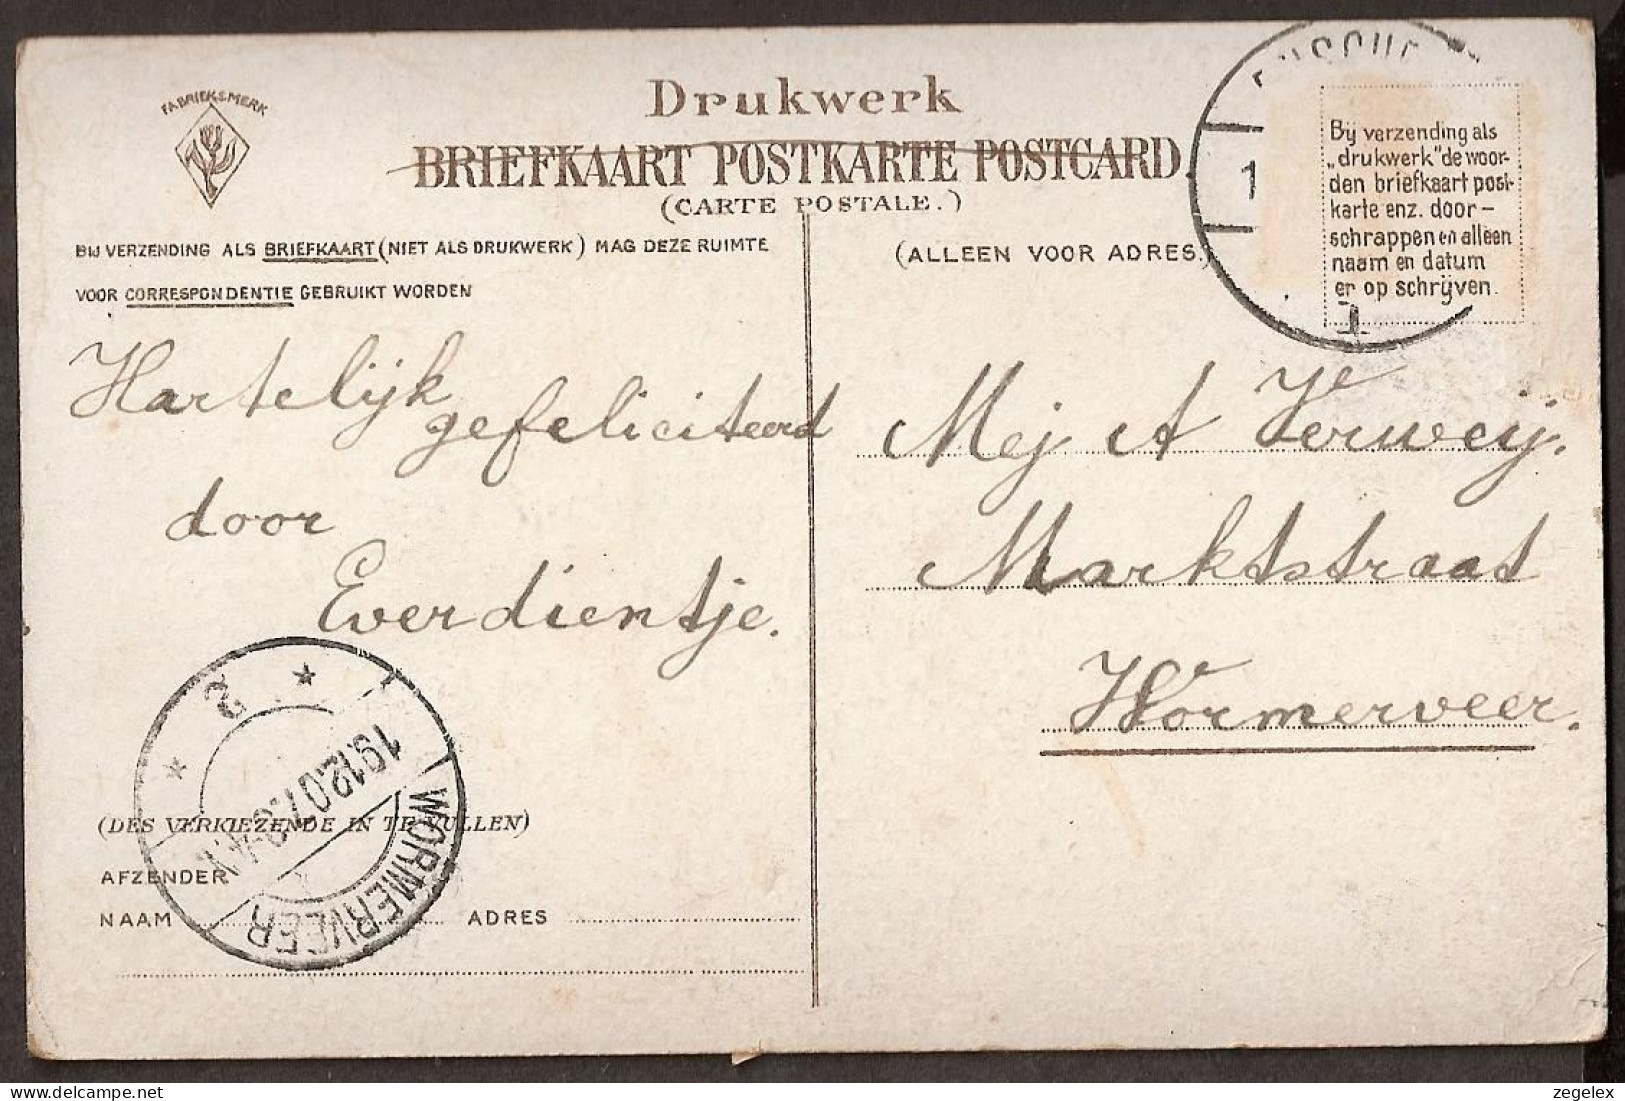 FABRIEKSMERK
Drukwerk
BRIEFKAART POSTKARTE POSTCARD.
(CARTE POSTALE.)
BIJ VERZENDING ALS BRIEFKAART (NIET ALS DRUKWERK) MAG DEZE RUIMTE
VOOR CORRESPONDENTIE GEBRUIKT WORDEN
(ALLEEN VOOR ADRES.)
1
1
Bij verzending als
„drukwerk" de woor-
den briefkaart post-
karte enz. door-
schrappen en alléén
naam en datum
er op schrijven.
Hartelijk
gefeliciteerd
door
Everdientje.
Mej A Verweij.
Marktstraat
Wormerveer.
2
19.12.07
WORMERVEER
(DES VERKIEZENDE IN TE VULLEN)
AFZENDER
NAAM ADRES
zegelex